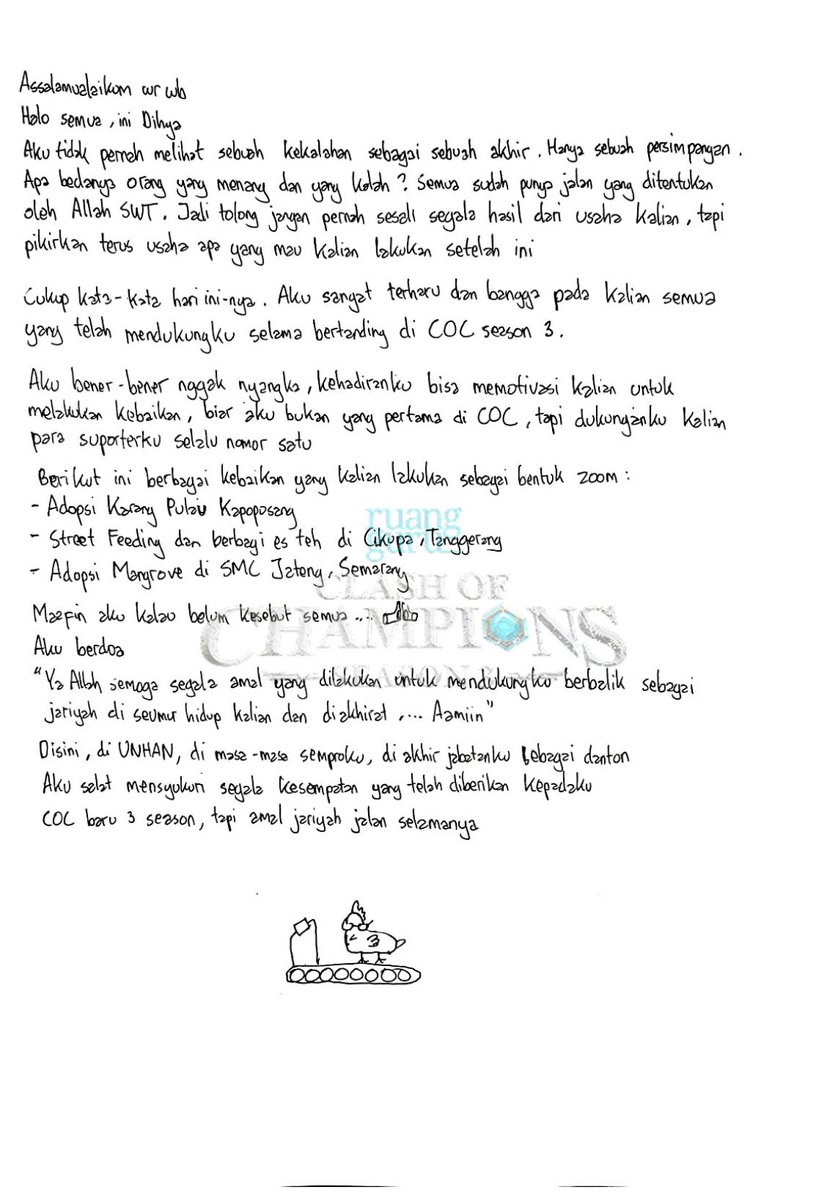 Assalamualaikum wr wb
Halo semua, ini Dihya
Aku tidak pernah melihat sebuah kekalahan sebagai sebuah akhir. Hanya sebuah persimpangan.
Apa bedanya orang yang menang dan yang kalah? Semua sudah punya jalan yang ditentukan
oleh Allah SWT. Jadi tolong jangan pernah sesali segala hasil dari usaha kalian, tapi
pikirkan terus usaha apa yang mau kalian lakukan setelah ini
Cukup kata-kata hari ini-nya. Aku sangat terharu dan bangga pada kalian semua
yang telah mendukungku selama bertanding di COC season 3.
Aku bener-bener nggak nyangka, kehadiranku bisa memotivasi kalian untuk
melakukan kebaikan, biar aku bukan yang pertama di COC, tapi dukunganku kalian
para suporterku selalu nomor satu
Berikut ini berbagai kebaikan yang kalian lakukan sebagai bentuk zoom :
- Adopsi Karang Pulau Kapoposang
- Street Feeding dan berbagi es teh di Cikupa, Tanggerang
- Adopsi Mangrove di SMC Jateng, Semarang
ruang
guru
CLASH OF
CHAMPIONS
SEASON 3
Maapin aku kalau belum kesebut semua ...
Aku berdoa
"Ya Allah semoga segala amal yang dilakukan untuk mendukungku berbalik sebagai
jariyah di seumur hidup kalian dan diakhirat ,... Aamiin"
Disini, di UNHAN, di masa-masa semproku, di akhir jabatanku sebagai danton
Aku salat mensyukuri segala kesempatan yang telah diberikan kepadaku
COC baru 3 season, tapi amal jariyah jalan selamanya
3